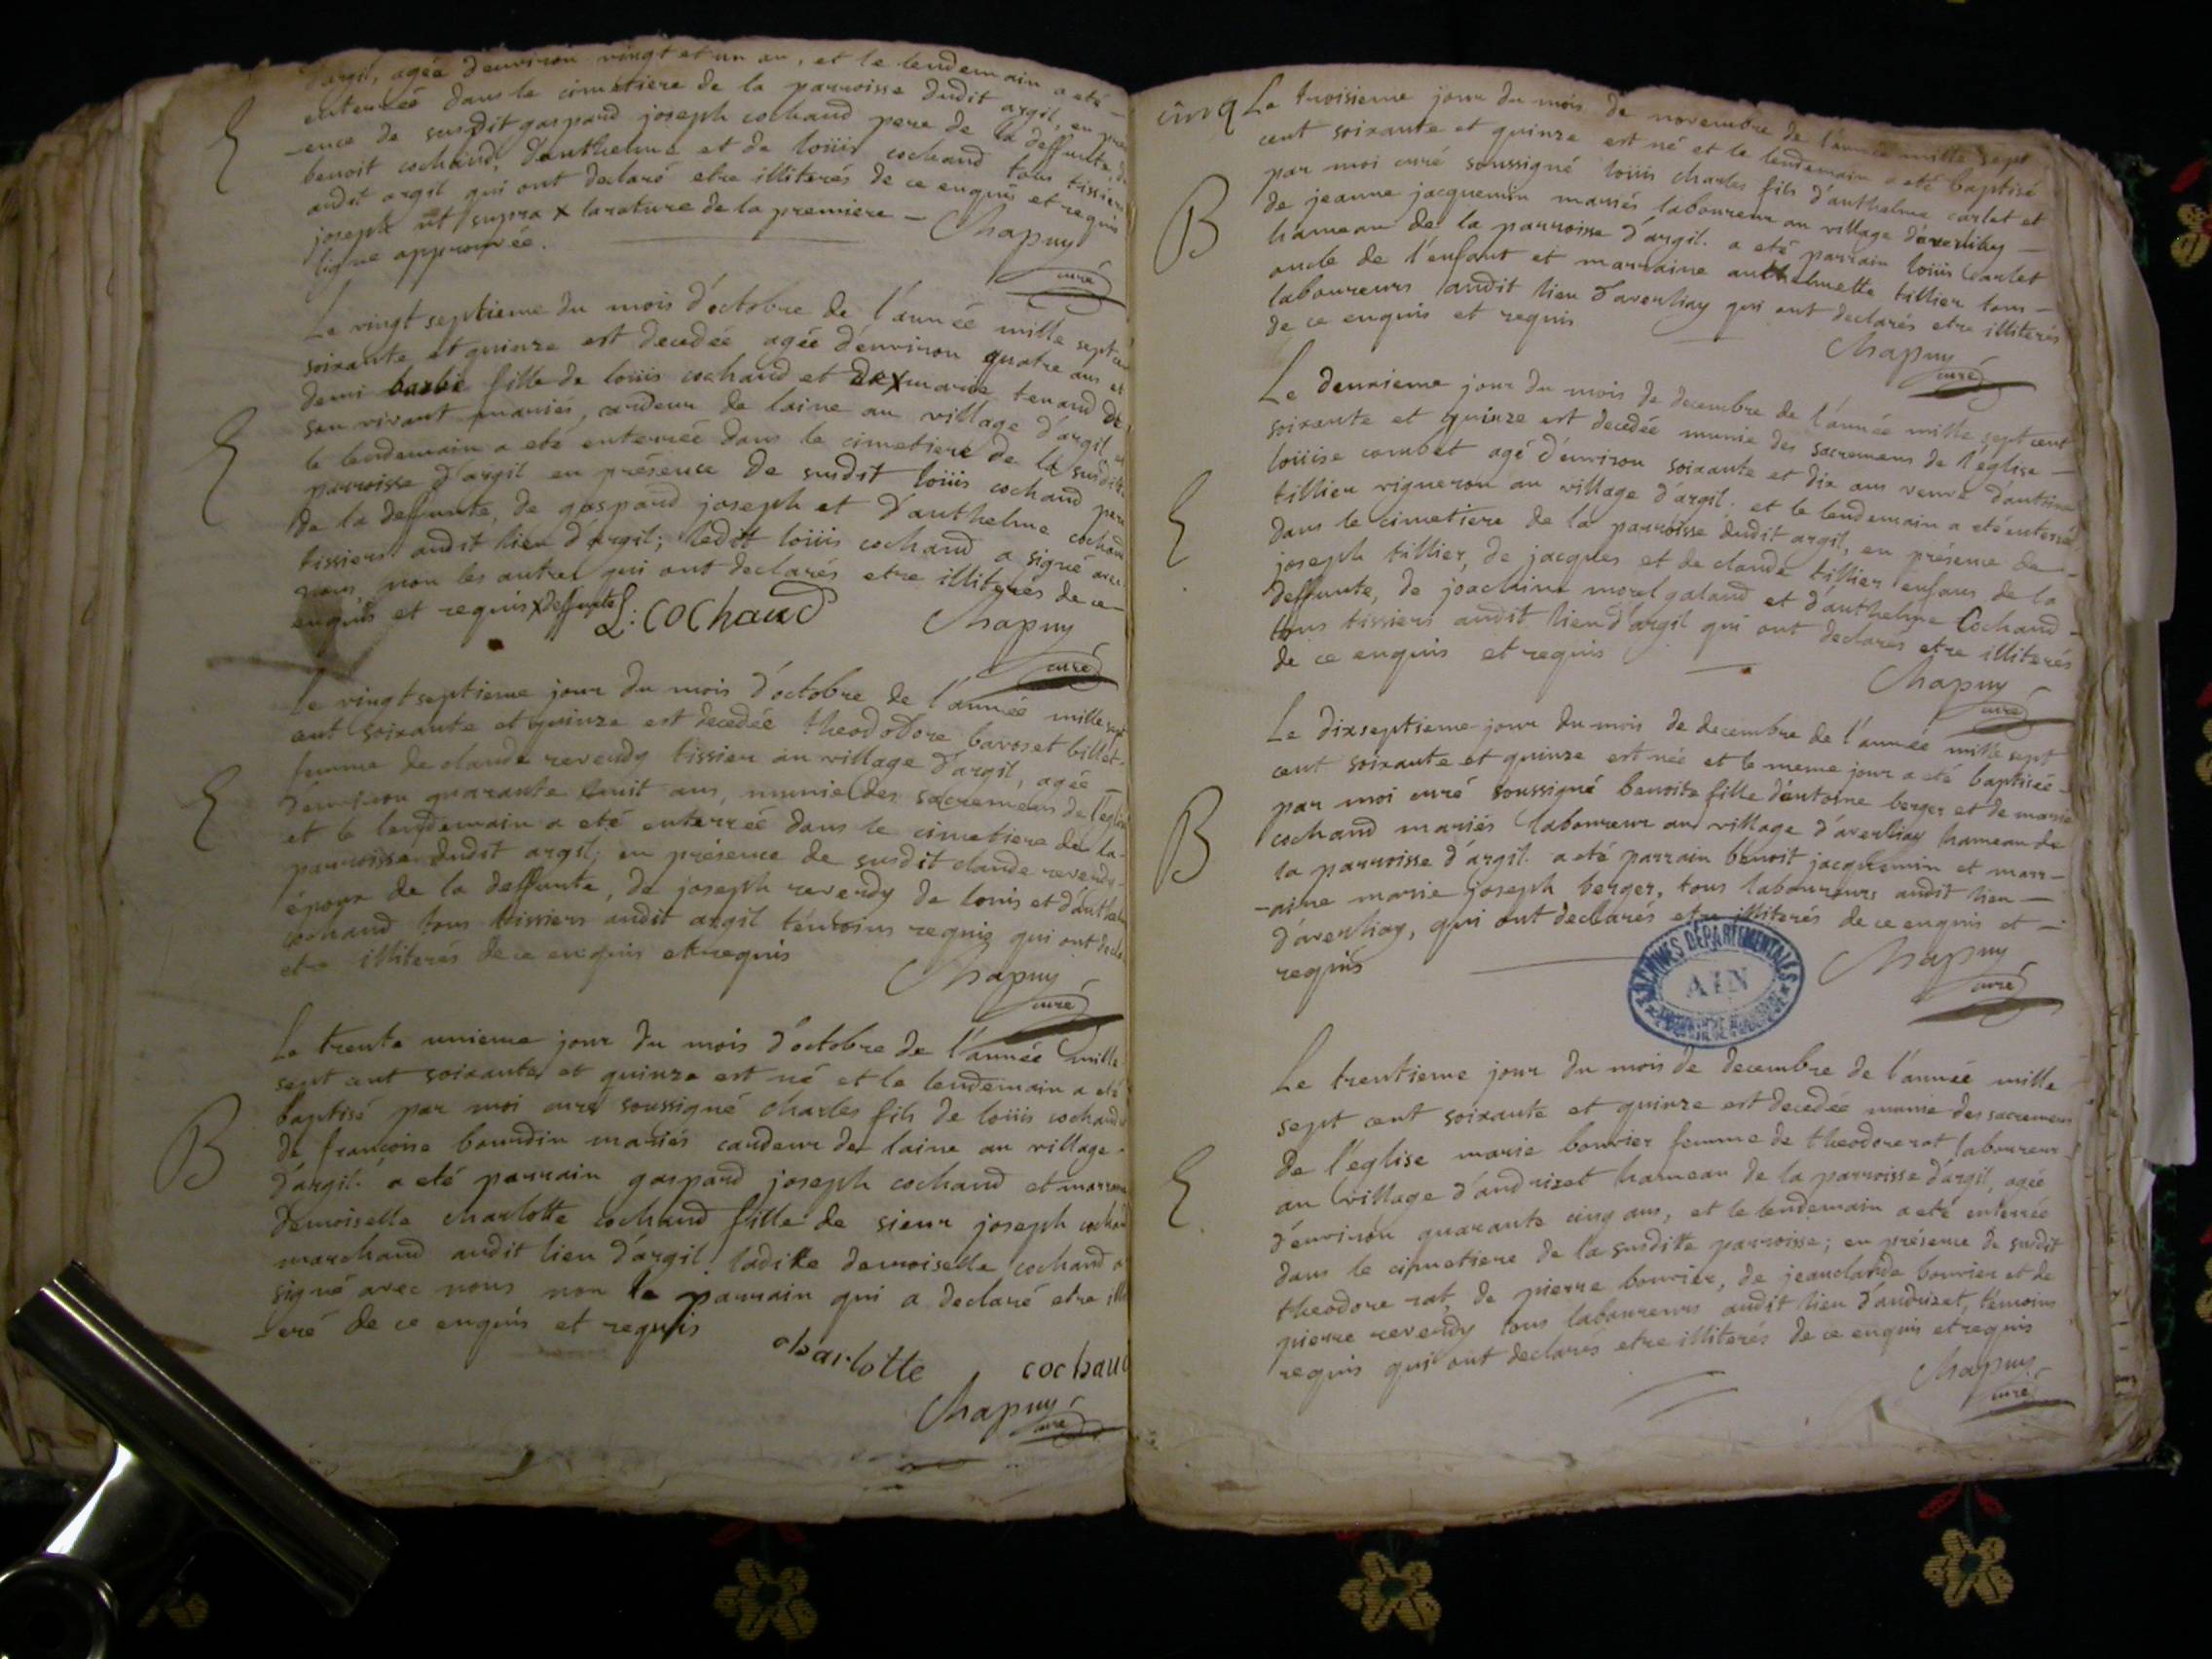 d'argil, agée d'environ vingt et un an, et le lendemain a eté
enterrée dans le cimetiere de la parroisse dudit argil, en pres
-ence de susdit gaspard joseph cochaud pere de la deffunte, de
benoit cochaud, d'anthelme et de loüis cochaud tous tissiers
audit argil qui ont declaré etre illiterés de ce enquis et requis
joseph ut supra x larature de la premiere —
ligne approuvée.
Chapuy
curé
E
Le vingt septieme du mois d'octobre de l'année mille sept cen
soixante et quinze est decedée agée d'environ quatre ans et
demi barbe fille de loüis cochaud et de x marie tenand de
son vivant mariés, cardeur de laine au village d'argil, et
le lendemain a eté enterrée dans le cimetiere de la susdite
parroisse d'argil en présence de susdit loüis cochaud pere
de la deffunte, de gaspard joseph et d'anthelme cochaud
tissiers audit lieu d'argil; ledit loüis cochaud a signé avec
nous, non les autres qui ont declarés etre illiterés de ce
enquis et requis x deffunte L: Cochaud
Chapuy
curé
E
Le vingt septieme jour du mois d'octobre de l'année mille sept
cent soixante et quinze est decedée theodore bavoset billet
femme de claude reverdy tissier au village d'argil, agée
d'environ quarante huit ans, munie des sacremens de l'eglise
et le lendemain a eté enterrée dans le cimetiere de la
parroisse dudit argil; en présence de susdit claude reverdy
époux de la deffunte, de joseph reverdy de louis et d'anthel
cochaud tous tissiers audit argil témoins requis qui ont decla
etre illiterés de ce enquis et requis
Chapuy
curé
E
Le trente unieme jour du mois d'octobre de l'année mille
sept cent soixante et quinze est né et le lendemain a eté
baptisé par moi curé soussigné charles fils de loüis cochaud
de françoise bourdin mariés cardeur de laine au village
d'argil. a eté parrain gaspard joseph cochaud et marraine
demoiselle charlotte cochaud fille de sieur joseph cochaud
marchand audit lieu d'argil. ladite demoiselle cochaud a
signé avec nous non le parrain qui a declaré etre illi
-eré de ce enquis et requis
B
charlotte cochaud
Chapuy
curé
cinq
Le troisieme jour du mois de novembre de l'année mille sept
cent soixante et quinze est né et le lendemain a eté baptisé
par moi curé soussigné loüis charles fils d'anthelme carlet et
de jeanne jacquemin mariés laboureur au village d'averliay —
hameau de la parroisse d'argil. a eté parrain loüis carlet
oncle de l'enfant et marraine anthelmette tillier tous —
laboureurs audit lieu d'averliay qui ont declarés etre illiterés
de ce enquis et requis
Chapuy
curé
B
Le deuxieme jour du mois de decembre de l'année mille sept cent
soixante et quinze est decedée munie des sacremens de l'église —
loüise combet agé d'environ soixante et dix ans veuve d'antoine
tillier vigneron au village d'argil. et le lendemain a eté enterré
dans le cimetiere de la parroisse dudit argil, en présence de —
joseph tillier, de jacques et de claude tillier enfans de la
deffunte, de joachim morel galand et d'anthelme Cochaud —
tous tissiers audit lieu d'argil qui ont declarés etre illiterés
de ce enquis et requis
Chapuy
curé
E
Le dixseptieme jour du mois de decembre de l'année mille sept
cent soixante et quinze est née et le meme jour a eté baptisée
par moi curé soussigné benoite fille d'entoine berger et de marie
cochaud mariés laboureur au village d'averliay hameau de
la parroisse d'argil. a eté parrain benoit jacquemin et marr-
-aine marie joseph berger, tous laboureurs audit lieu —
d'averliay, qui ont declarés etre illiterés de ce enquis et —
requis
Chapuy
curé
B
ARCHIVES DÉPARTEMENTALES
AIN
Le trentieme jour du mois de decembre de l'année mille
sept cent soixante et quinze est decedée munie des sacremens
de l'église marie bouvier femme de theodore rat laboureur
au village d'andrizet hameau de la parroisse d'argil, agée
d'environ quarante cinq ans, et le lendemain a eté enterrée
dans le cimetiere de la susditte parroisse; en présence du susdit
theodore rat, de pierre bouvier, de jeanclaude bouvier et de
pierre reverdy tous laboureurs audit lieu d'andrizet, témoins
requis qui ont declarés etre illiterés de ce enquis et requis
Chapuy
curé
E